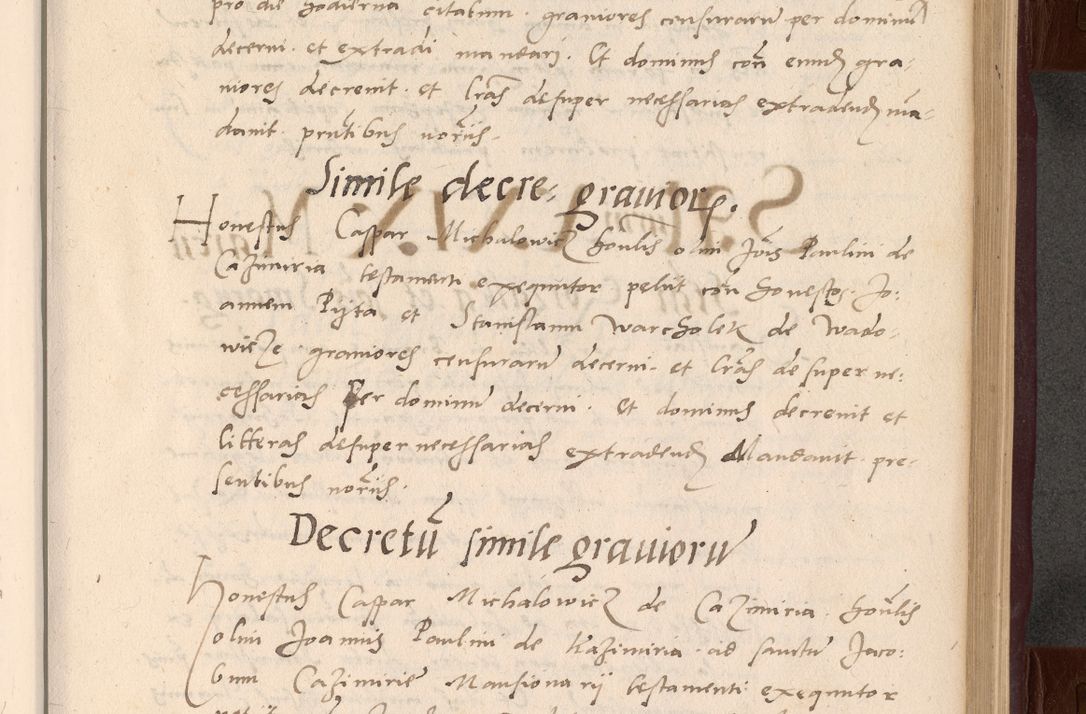 pro die hodierna citatum. graviores censurarum per dominum
decerni. et extradi mandari. Et dominus con̄ eund gra-
viores decrevit. et lr̄as desuper necessarias extradend mā-
davit. prn̄tibus norīis.
Simile decre: gravior.
Honestus Caspar Michalowicz hon̄lis olim Joīs Paulini de
Cazimiria testamenti exequutor petiit con̄ honestos. Jo-
annem Pijta et Stanislaum Warcholek de Wado-
wicze. graviores censurarū decerni. et lr̄as desuper ne-
cessarias Per dominū decerni. Et dominus decrevit et
litteras desuper necessarias extradend Mandavit. pre-
sentibus norīis.
Decretū simile graviorū
Honestus Caspar Michalowicz de Cazimiria. hon̄lis
olim Joannis Paulini de Kazimiria. ad sanctū Jaco-
bum Cazimirie Mansionarij testamenti exequutor